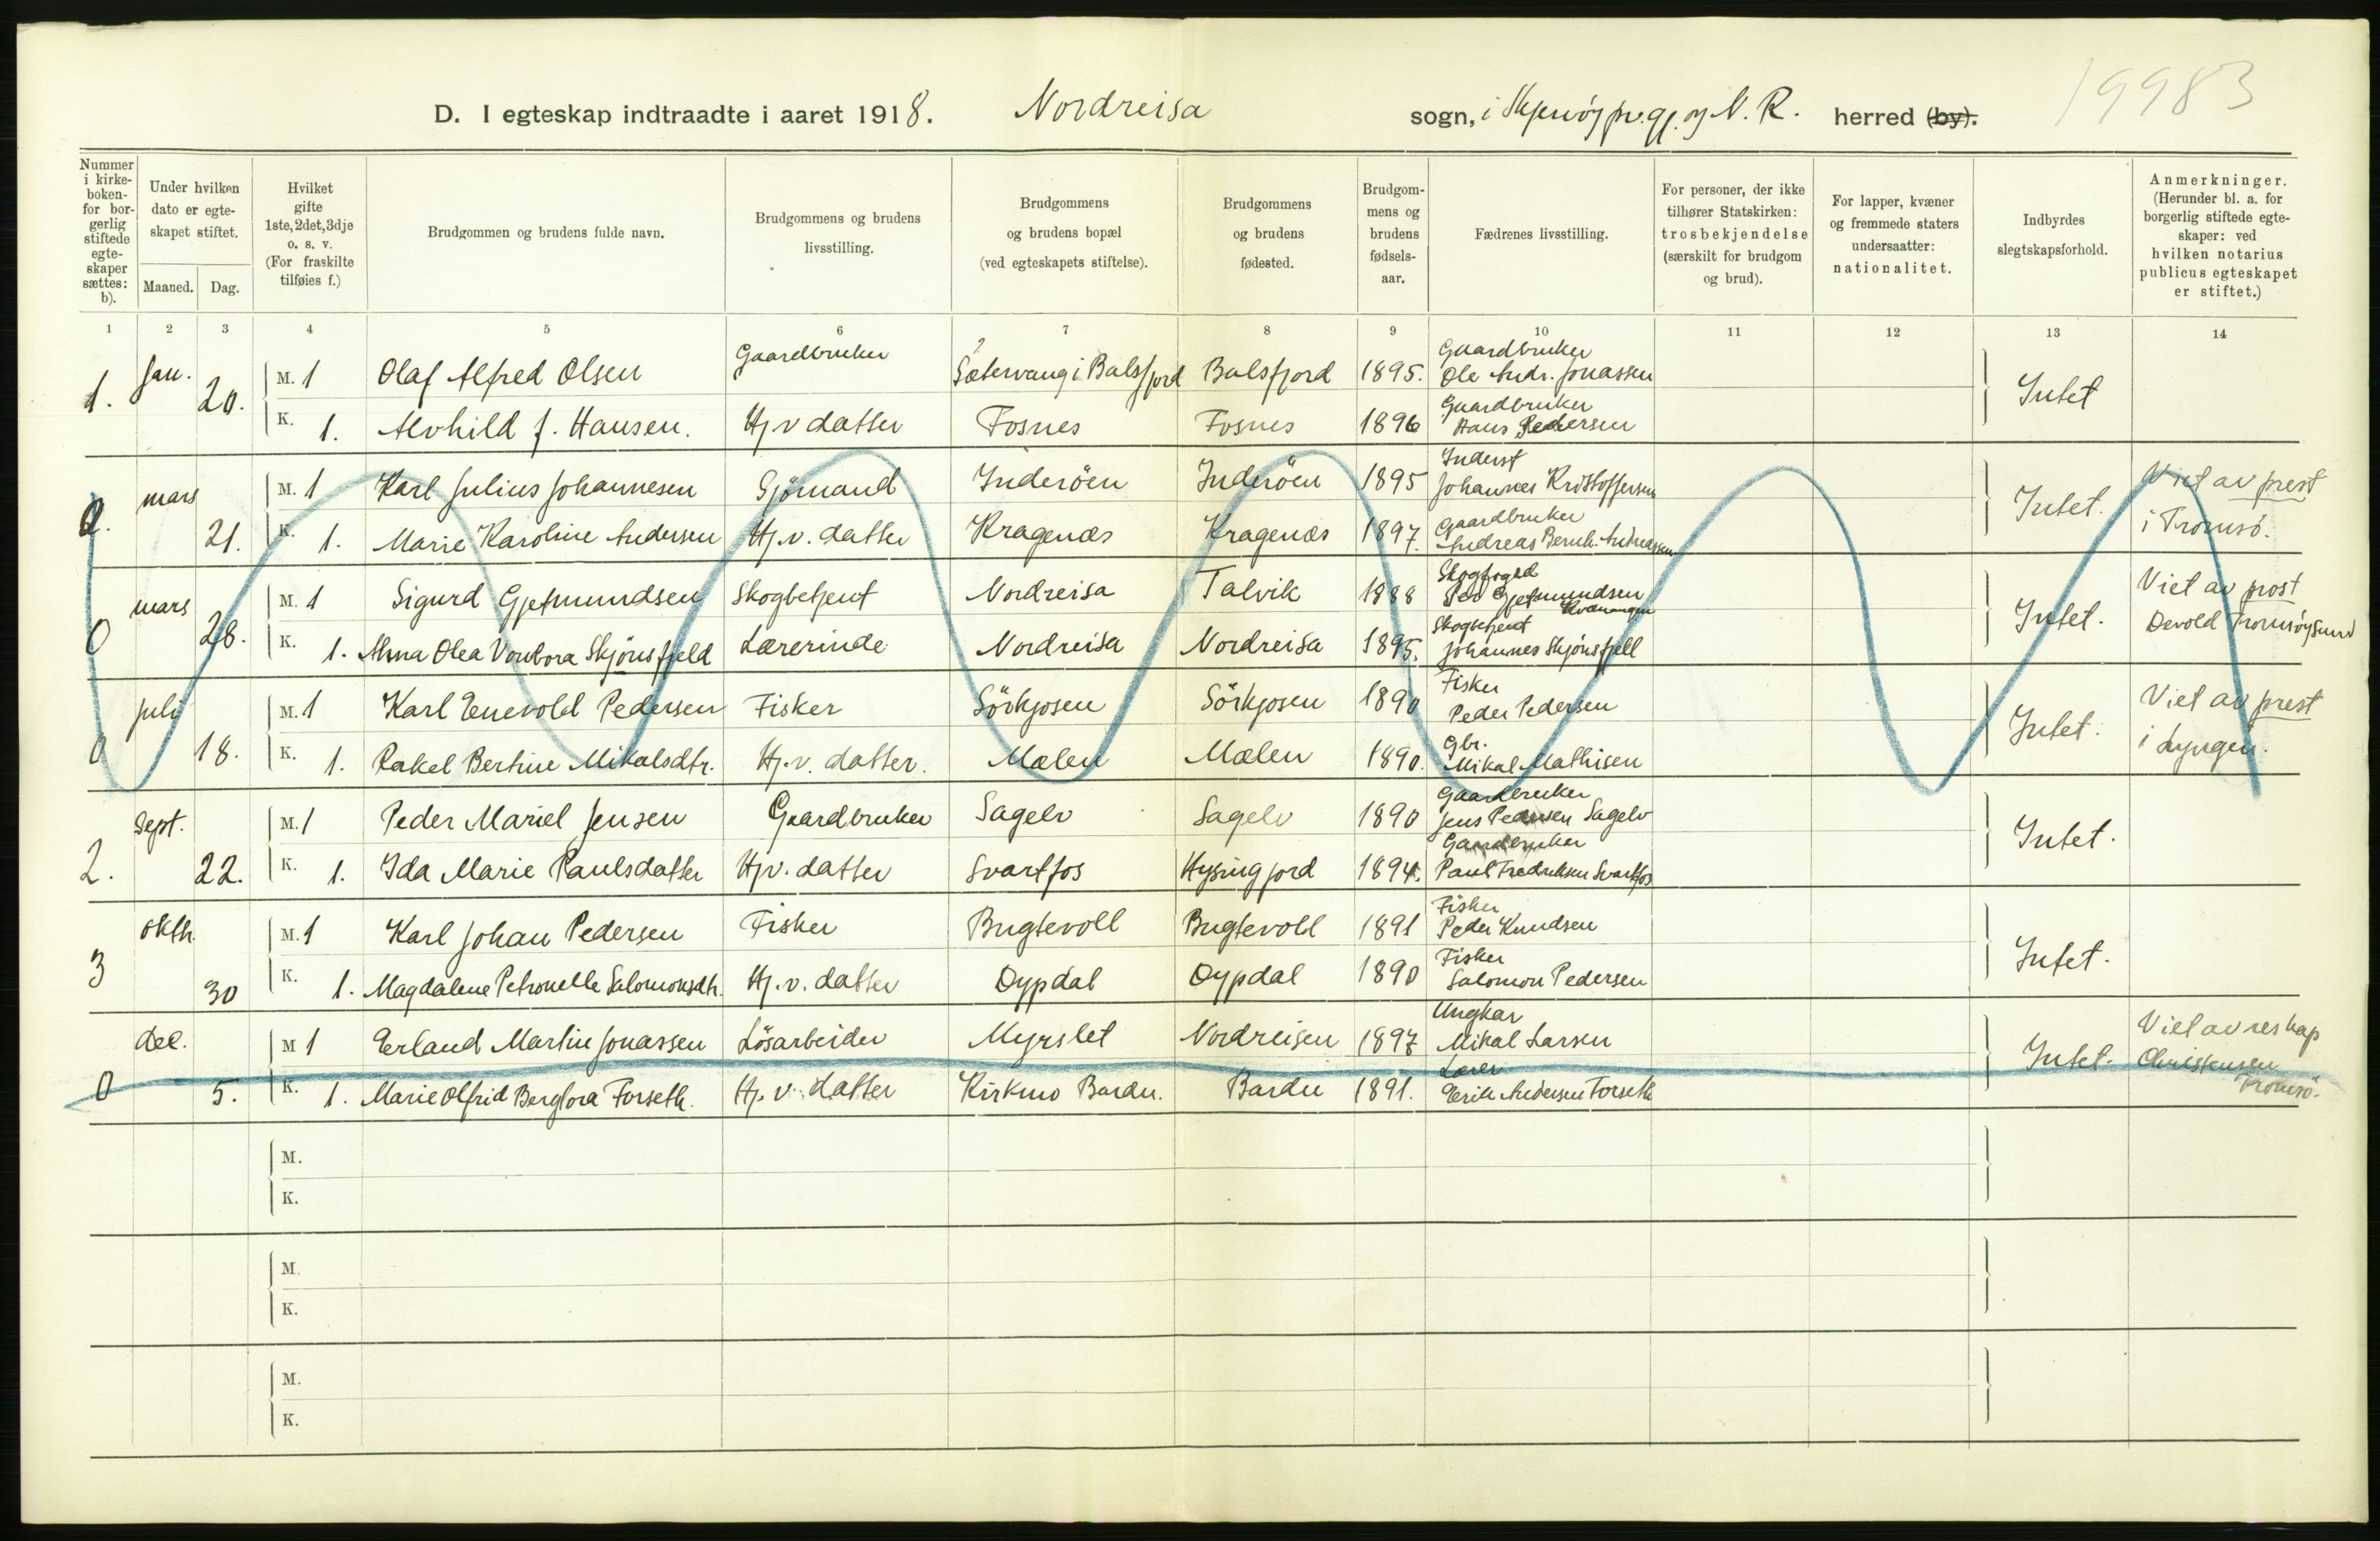 19983
D. I egteskap indtraadte i aaret 1918. Nordreisa sogn, i Skjervøy pr.gj. og N. R. herred (by).
Nummer i kirkeboken- for borgerlig stiftede egteskaper sættes: b).
Under hvilken dato er egteskapet stiftet.
Maaned. Dag.
Hvilket gifte 1ste, 2det, 3dje o. s. v. (For fraskilte tilføies f.)
Brudgommen og brudens fulde navn.
Brudgommens og brudens livsstilling.
Brudgommens og brudens bopæl (ved egteskapets stiftelse).
Brudgommens og brudens fødested.
Brudgommens og brudens fødselsaar.
Fædrenes livsstilling.
For personer, der ikke tilhører Statskirken: trosbekjendelse (særskilt for brudgom og brud).
For lapper, kvæner og fremmede staters undersaatter: nationalitet.
Indbyrdes slegtskapsforhold.
Anmerkninger. (Herunder bl. a. for borgerlig stiftede egteskaper: ved hvilken notarius publicus egteskapet er stiftet.)
1 2 3 4 5 6 7 8 9 10 11 12 13 14
1. Jan. 20. M. 1 Olaf Alfred Olsen Gaardbruker Sætervang i Balsfjord Balsfjord 1895. Gaardbruker Ole Andr. Jonassen Intet
K. 1. Alvhild J. Hansen. Hjv datter Fosnes Fosnes 1896 Gaardbruker Hans Pedersen
2. mars 21. M. 1 Karl Julius Johannesen Sjömand Inderöen Inderöen 1895 Inderst Johannes Kristoffersen Intet. Viet av prest i Tromsö.
K. 1. Marie Karoline Andersen Hj.v. datter Kragenæs Kragenæs 1897. Gaardbruker Andreas Bernh. Andreassen
0 mars 28. M. 1 Sigurd Gjetmundsen Skogbetjent Nordreisa Talvik 1888 Skogfoged Per Gjetmundsen Kvænangen Intet. Viet av prost Devold Tromsöysund
K. 1. Anna Olea Vonbora Skjönsfjeld Lærerinde Nordreisa Nordreisa 1895. Skogbetjent Johannes Skjönsfjell
0 juli 18. M. 1 Karl Enevold Pedersen Fisker Sörkjosen Sörkjosen 1890 Fisker Peder Pedersen Intet. Viet av prest i Lyngen.
K. 1. Rakel Bertine Mikalsdtr. Hj.v. datter. Mælen Mælen 1890. Gbr. Mikal Mathisen
2. Sept. 22. M. 1 Peder Mariel Jensen Gaardbruker Sagelv Sagelv 1890 Gaardbruker Jens Pedersen Sagelv Intet.
K. 1. Ida Marie Paulsdatter Hjv. datter Svartfos Hysingjord 1894. Gaardbruker Paul Fredriksen Svartfos
3 oktb. 30 M. 1 Karl Johan Pedersen Fisker Bugtevoll Bugtevoll 1891 Fisker Peder Knudsen Intet.
K. 1. Magdalene Petronelle Salomonsdtr. Hj.v. datter Dypdal Dypdal 1890 Fisker Salomon Pedersen
0 Dec. 5. M 1 Erland Martin Jonassen Lösarbeider Myrslet Nordreisen 1897 Ungkar Mikal Larsen Intet. Viet av reskap Christensen Tromsö.
K. 1. Marie Olfrid Bergtora Forseth. Hj.v. datter Kirkmo Bardu. Bardu 1891. Lærer Erik Andersen Forseth
M.
K.
M.
K.
M.
K.